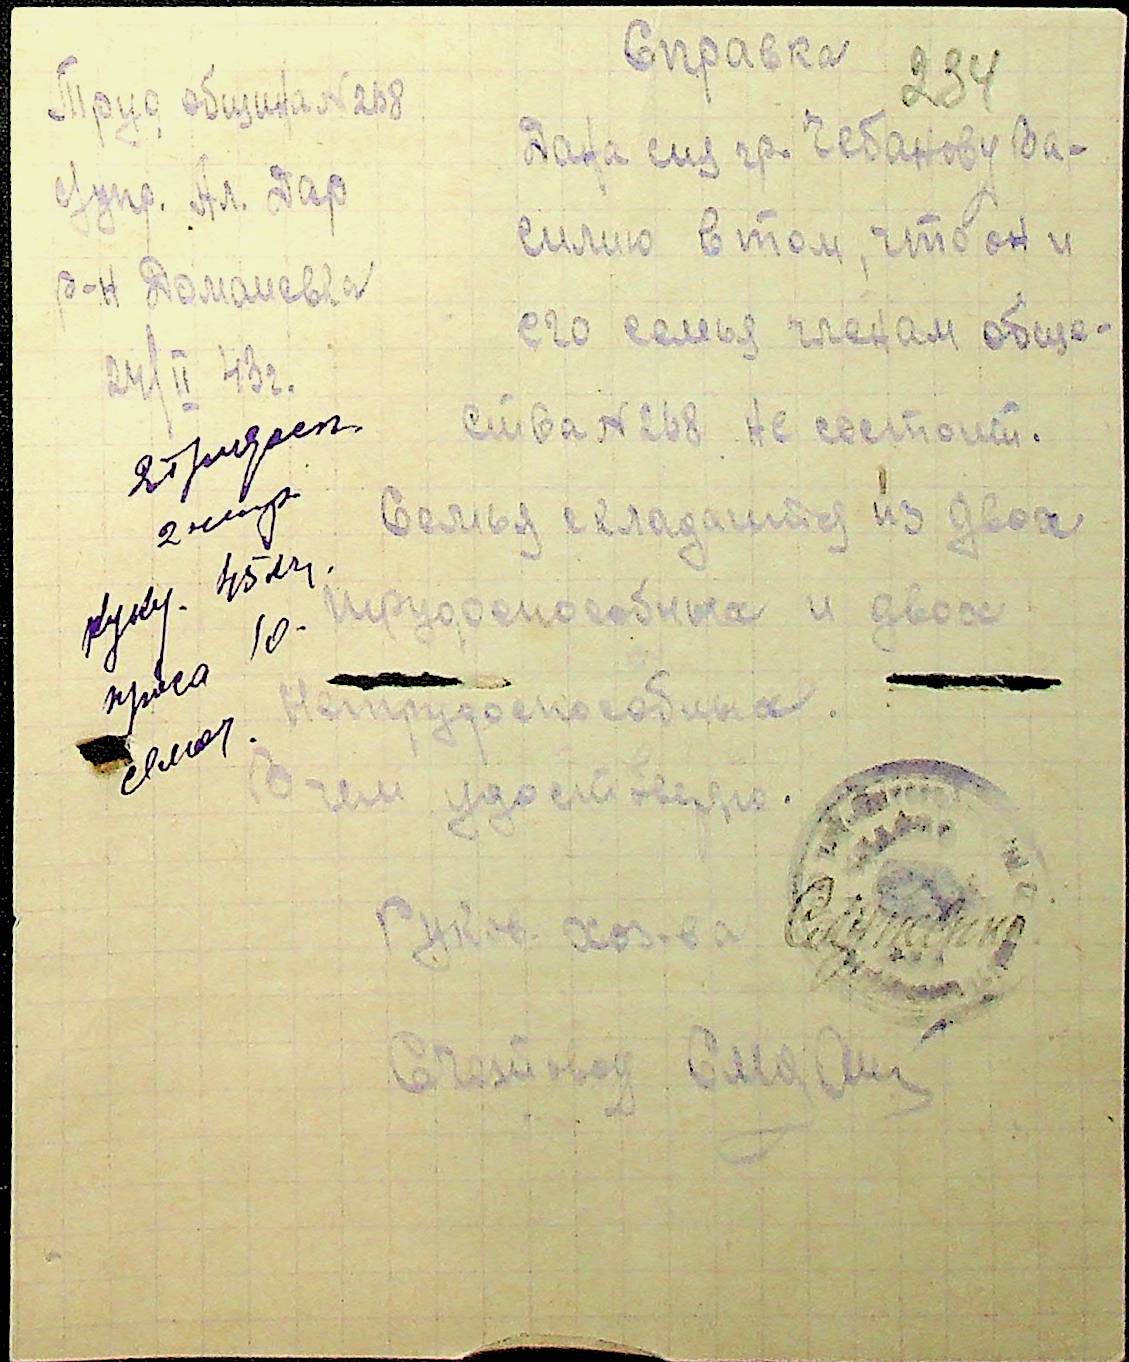 Справка
234
Труд община № 268
Ал. Дар
р-н Доманевка
24/II 43г.
Дана сия гр. Чебанову Ва-
силию в том, что он и
его семья членам обще-
ства № 268 не состоит.
Семья складаится из двох
трудоспособных и двох
Нетрудоспособных.
В чем удостоверяю.
Руков. хоз-ва
Счетовод
2 трудосп.
2 нетр.
куку. 45 кг.
проса 10-